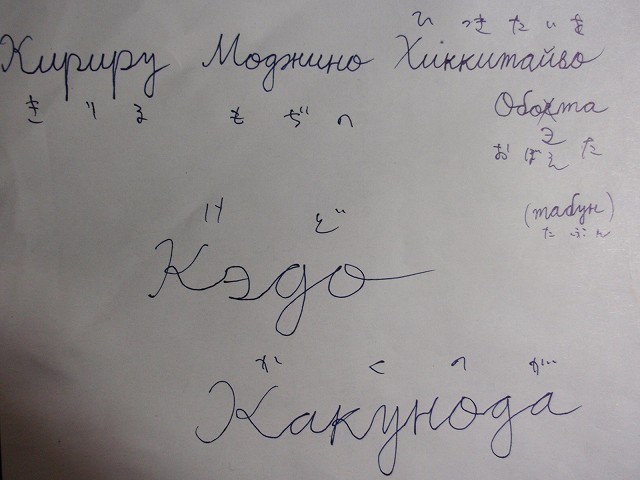 ひ っ き た い を
Кириру Моджино Хиккитайво
き り る も ぢ の
Обоэта
お ぼ え た
(табун)
た ぶ ん
け ど
Кэдо
か く の が
Какунода